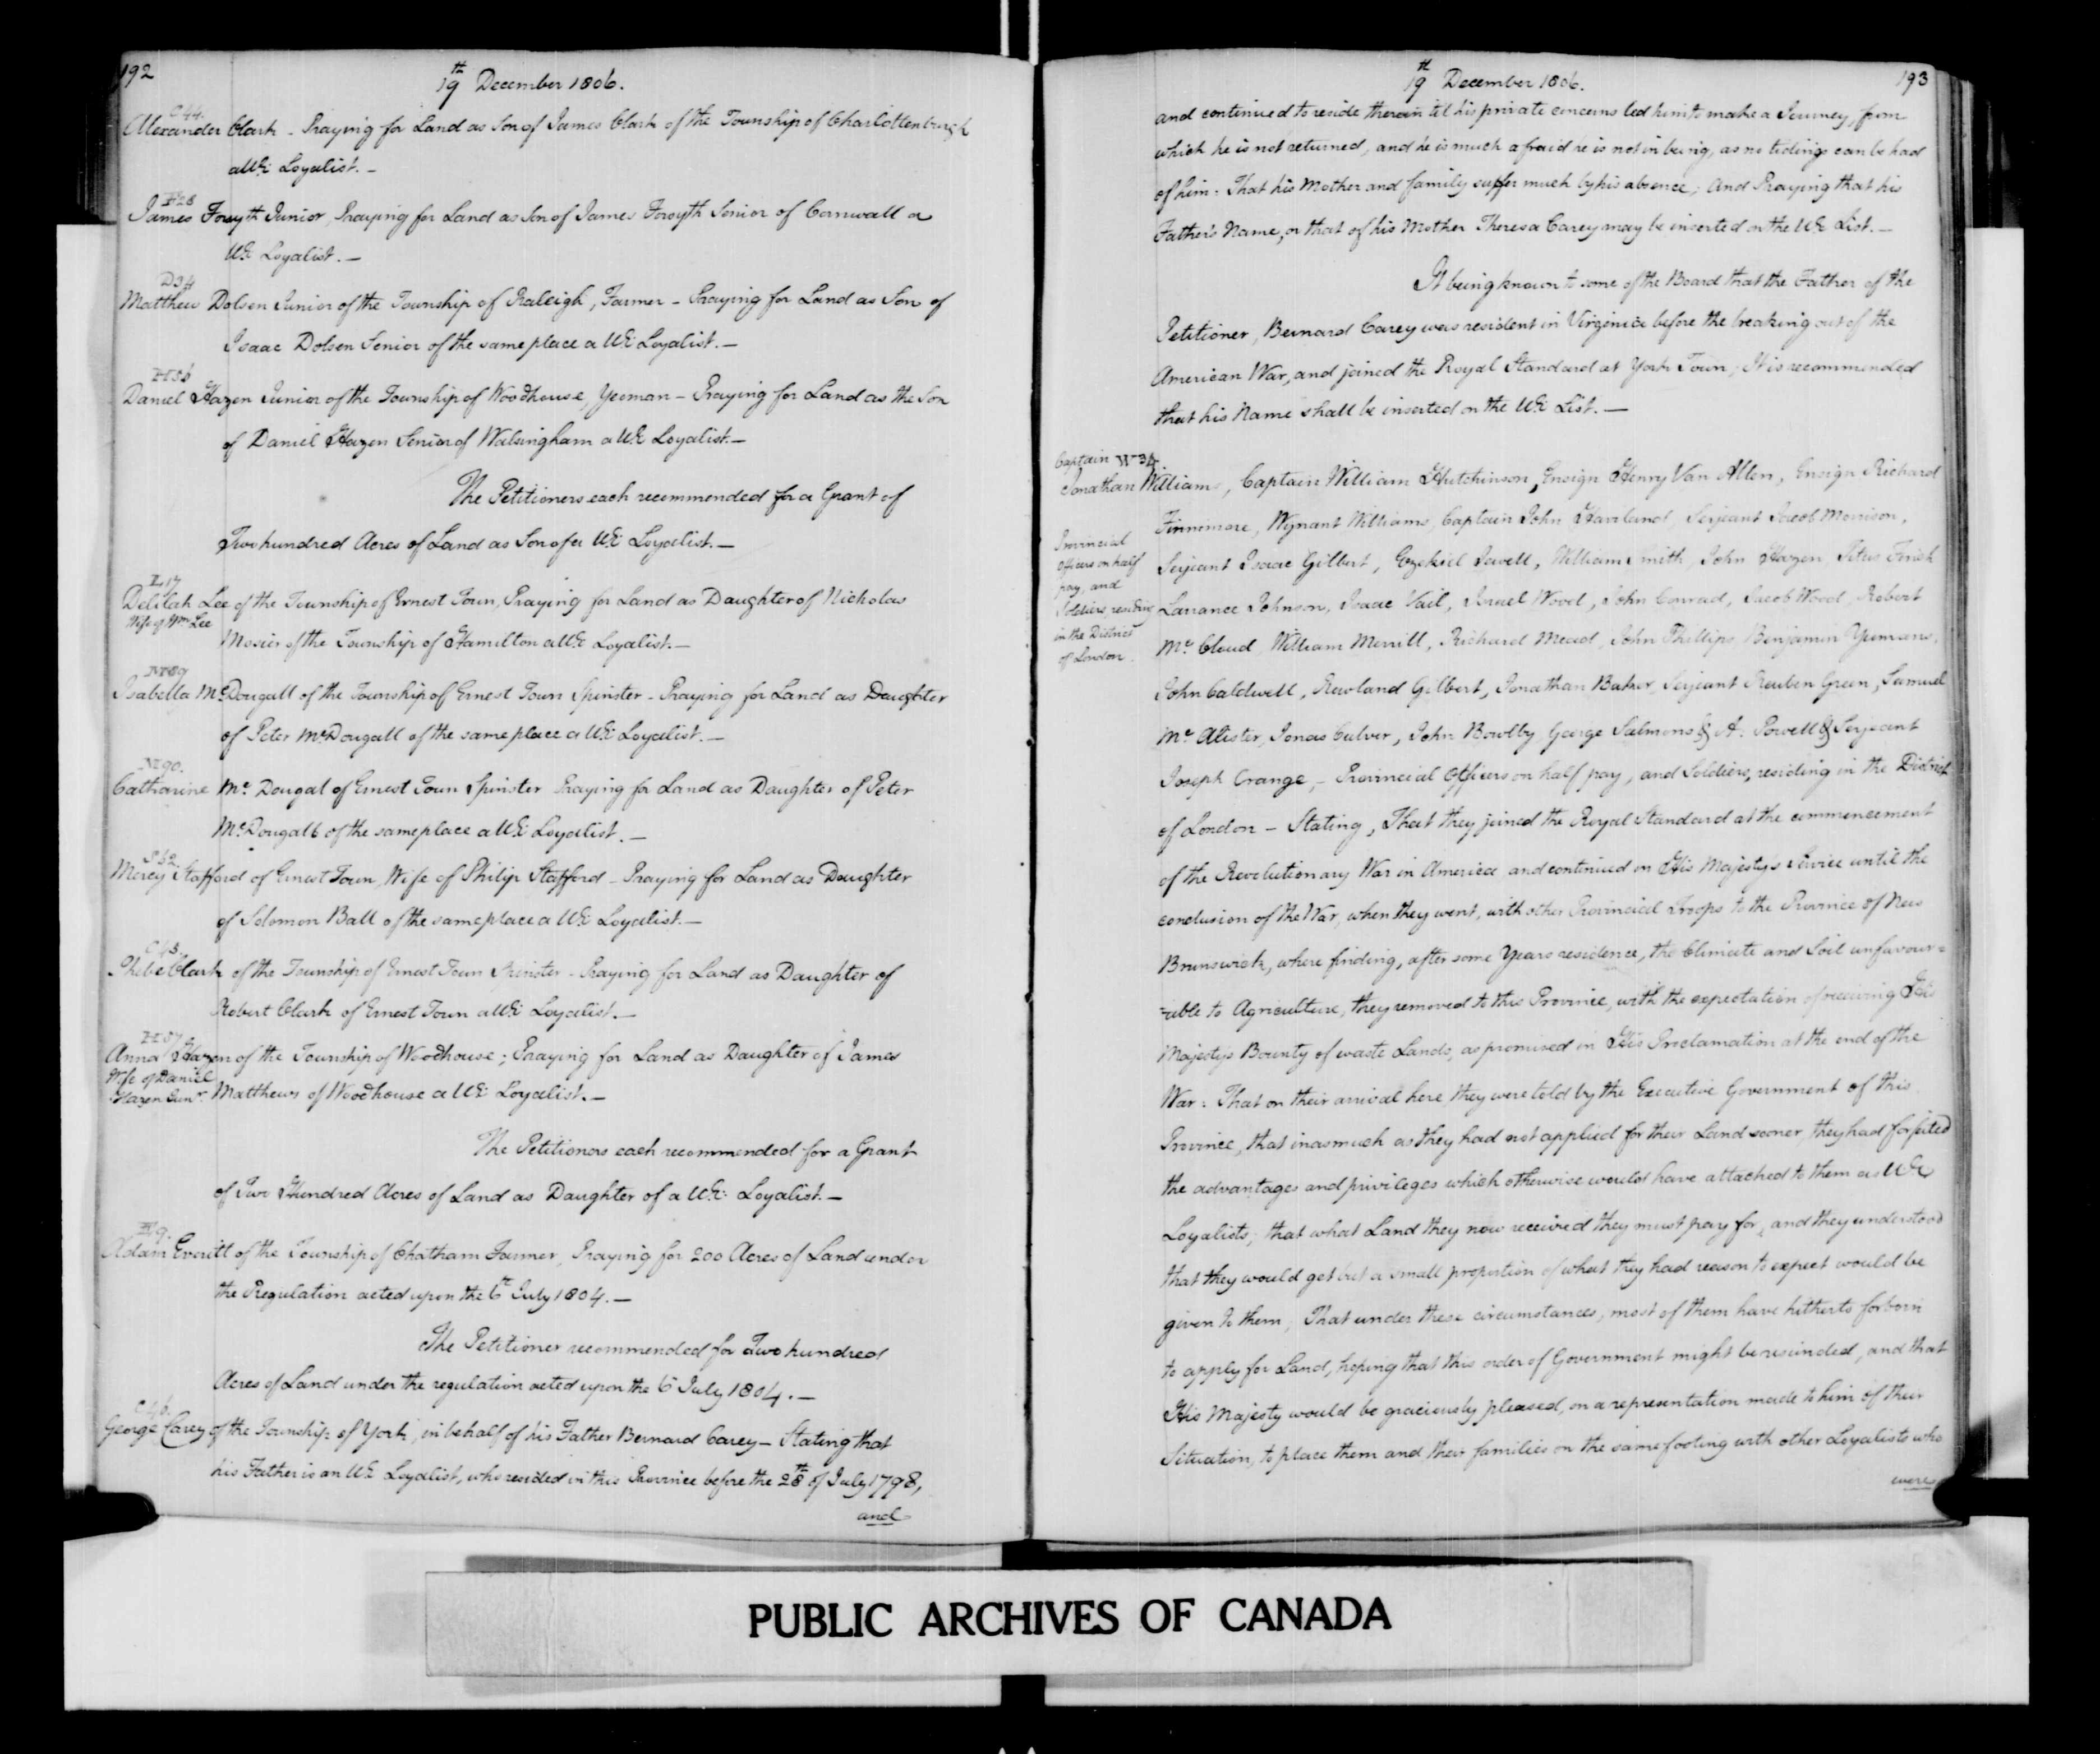 192
19th December 1806.
C 44.
Alexander Clark - Praying for Land as Son of James Clark of the Township of Charlottenburgh
a UE Loyalist. -
F 28
James Forsyth Junior, Praying for Land as Son of James Forsyth Senior of Cornwall a
UE Loyalist. -
D 34
Matthew Dolsen Junior of the Township of Raleigh, Farmer - Praying for Land as Son of
Isaac Dolsen Senior of the same place a UE Loyalist. -
H 56
Daniel Hazen Junior of the Township of Woodhouse, Yeoman - Praying for Land as the Son
of Daniel Hazen Senior of Walsingham a UE Loyalist. -
The Petitioners each recommended for a Grant of
Two hundred Acres of Land as Son of a UE Loyalist. -
L 17
Delilah Lee of the Township of Ernest Town, Praying for Land as Daughter of Nicholas
Wife of Wm Lee
Mosier of the Township of Hamilton a UE Loyalist. -
M 89
Isabella McDougall of the Township of Ernest Town Spinster - Praying for Land as Daughter
of Peter McDougall of the same place a UE Loyalist. -
M 90.
Catharine Mc Dougal of Ernest Town Spinster Praying for Land as Daughter of Peter
McDougall of the same place a UE Loyalist. -
S 62
Mercy Stafford of Ernest Town, Wife of Philip Stafford - Praying for Land as Daughter
of Solomon Ball of the same place a UE Loyalist. -
C 45.
Phebe Clark of the Township of Ernest Town Spinster - Praying for Land as Daughter of
Robert Clark of Ernest Town a UE Loyalist. -
H 57
Anna Hazen of the Township of Woodhouse; Praying for Land as Daughter of James
Wife of Daniel
Hazen Junr.
Matthews of Woodhouse a UE Loyalist. -
The Petitioners each recommended for a Grant
of Two Hundred Acres of Land as Daughter of a UE Loyalist. -
E 9.
Adam Everitt of the Township of Chatham Farmer, Praying for 200 Acres of Land under
the Regulation acted upon the 6th July 1804. -
The Petitioner recommended for Two hundred
Acres of Land under the regulation acted upon the 6 July 1804. -
C 46.
George Carey of the Township of York, in behalf of his Father Bernard Carey - Stating that
his Father is an UE Loyalist, who resided in this Province before the 28th of July 1798,
and
19th December 1806.
193
and continued to reside therein til his private concerns led him to make a Journey, from
which he is not returned, and he is much afraid he is not in being, as no tidings can be had
of him: That his Mother and family suffer much by his absence; And Praying that his
Father's Name, or that of his Mother Theresa Carey may be inserted on the UE List. -
It being known to some of the Board that the Father of the
Petitioner, Bernard Carey was resident in Virginia before the breaking out of the
American War, and joined the Royal Standard at York Town; It is recommended
that his Name shall be inserted on the UE List. -
Captain W 34
Jonathan Williams, Captain William Hutchinson, Ensign Henry Van Allen, Ensign Richard
Finnimore, Wynant Williams, Captain John Haviland, Serjeant Jacob Morrison,
Provincial
Officers on half
pay, and
Soldiers residing
in the District
of London.
Serjeant Isaac Gilbert, Ezekiel Sovell, William Smith, John Hazen, Titus Finch
Larrance Johnson, Isaac Vail, Israel Wood, John Conrad, Jacob Wood, Robert
Mc Cloud, William Merrill, Richard Mead, John Phillips, Benjamin Yumans,
John Caldwell, Rowland Gilbert, Jonathan Baker, Serjeant Reuben Green, Samuel
Mc Alister, Jonas Culver, John Bowlby George Salmons & A. Powell & Serjeant
Joseph Orange, - Provincial Officers on half pay, and Soldiers, residing in the District
of London - Stating, That they joined the Royal Standard at the commencement
of the Revolutionary War in America, and continued in His Majesty's Service until the
conclusion of the War, when they went, with other Provincial Troops to the Province of New
Brunswick, where finding, after some Years residence, the Climate and Soil unfavour=
=able to Agriculture, they removed to this Province, with the expectation of receiving His
Majesty's Bounty of waste Lands, as promised in His Proclamation at the end of the
War: That on their arrival here they were told by the Executive Government of this
Province, that inasmuch as they had not applied for their Land sooner, they had forfeited
the advantages and privileges which otherwise would have attached to them as UE
Loyalists; that what Land they now received they must pay for, and they understood
that they would get but a small proportion of what they had reason to expect would be
given to them; That under these circumstances, most of them have hitherto forborn
to apply for Land, hoping that this order of Government might be rescinded, and that
His Majesty would be graciously pleased, on a representation made to him of their
Situation, to place them and their families on the same footing with other Loyalists who
were
PUBLIC ARCHIVES OF CANADA